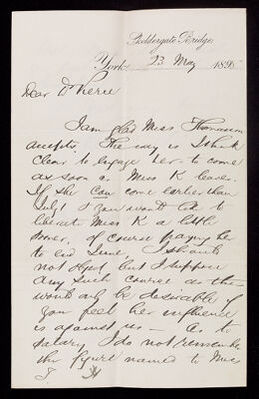 York, 23 May 1898
Dear Dr
I am glad Miss Thomson
accepts. The way is I think
clear to engage her to come
as soon as Miss K leaves.
If she can come earlier than
July 1 & you would like to
liberate Miss K a little
sooner, of course paying her
to end June, I should
not object, but I suppose
any such course as this
would only be desirable if
you feel her influence
is against us — As to
salary I do not remember
the figure named to Miss